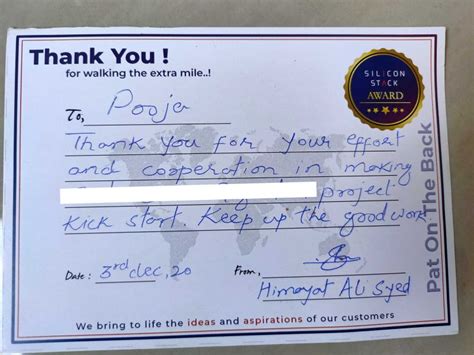 Thank You !
for walking the extra mile..!
SILICON
STACK
AWARD
To, Pooja
Thank you for your effort
and cooperation in making
project.
Kick start. Keep up the good work
Date : 3rd dec, 20 From,
Himayat Ali Syed
Pat On The Back
We bring to life the ideas and aspirations of our customers